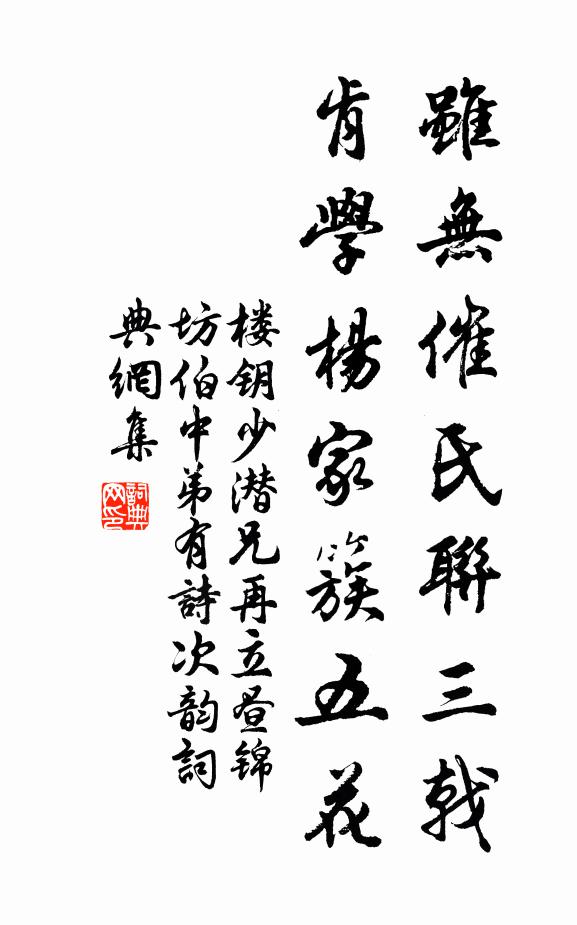 雖無催氏聯三戟
肯學楊家簇五花
楼钥少潜兄再立昼锦
坊伯中弟有詩次韵詞
典網集
詞典
网印